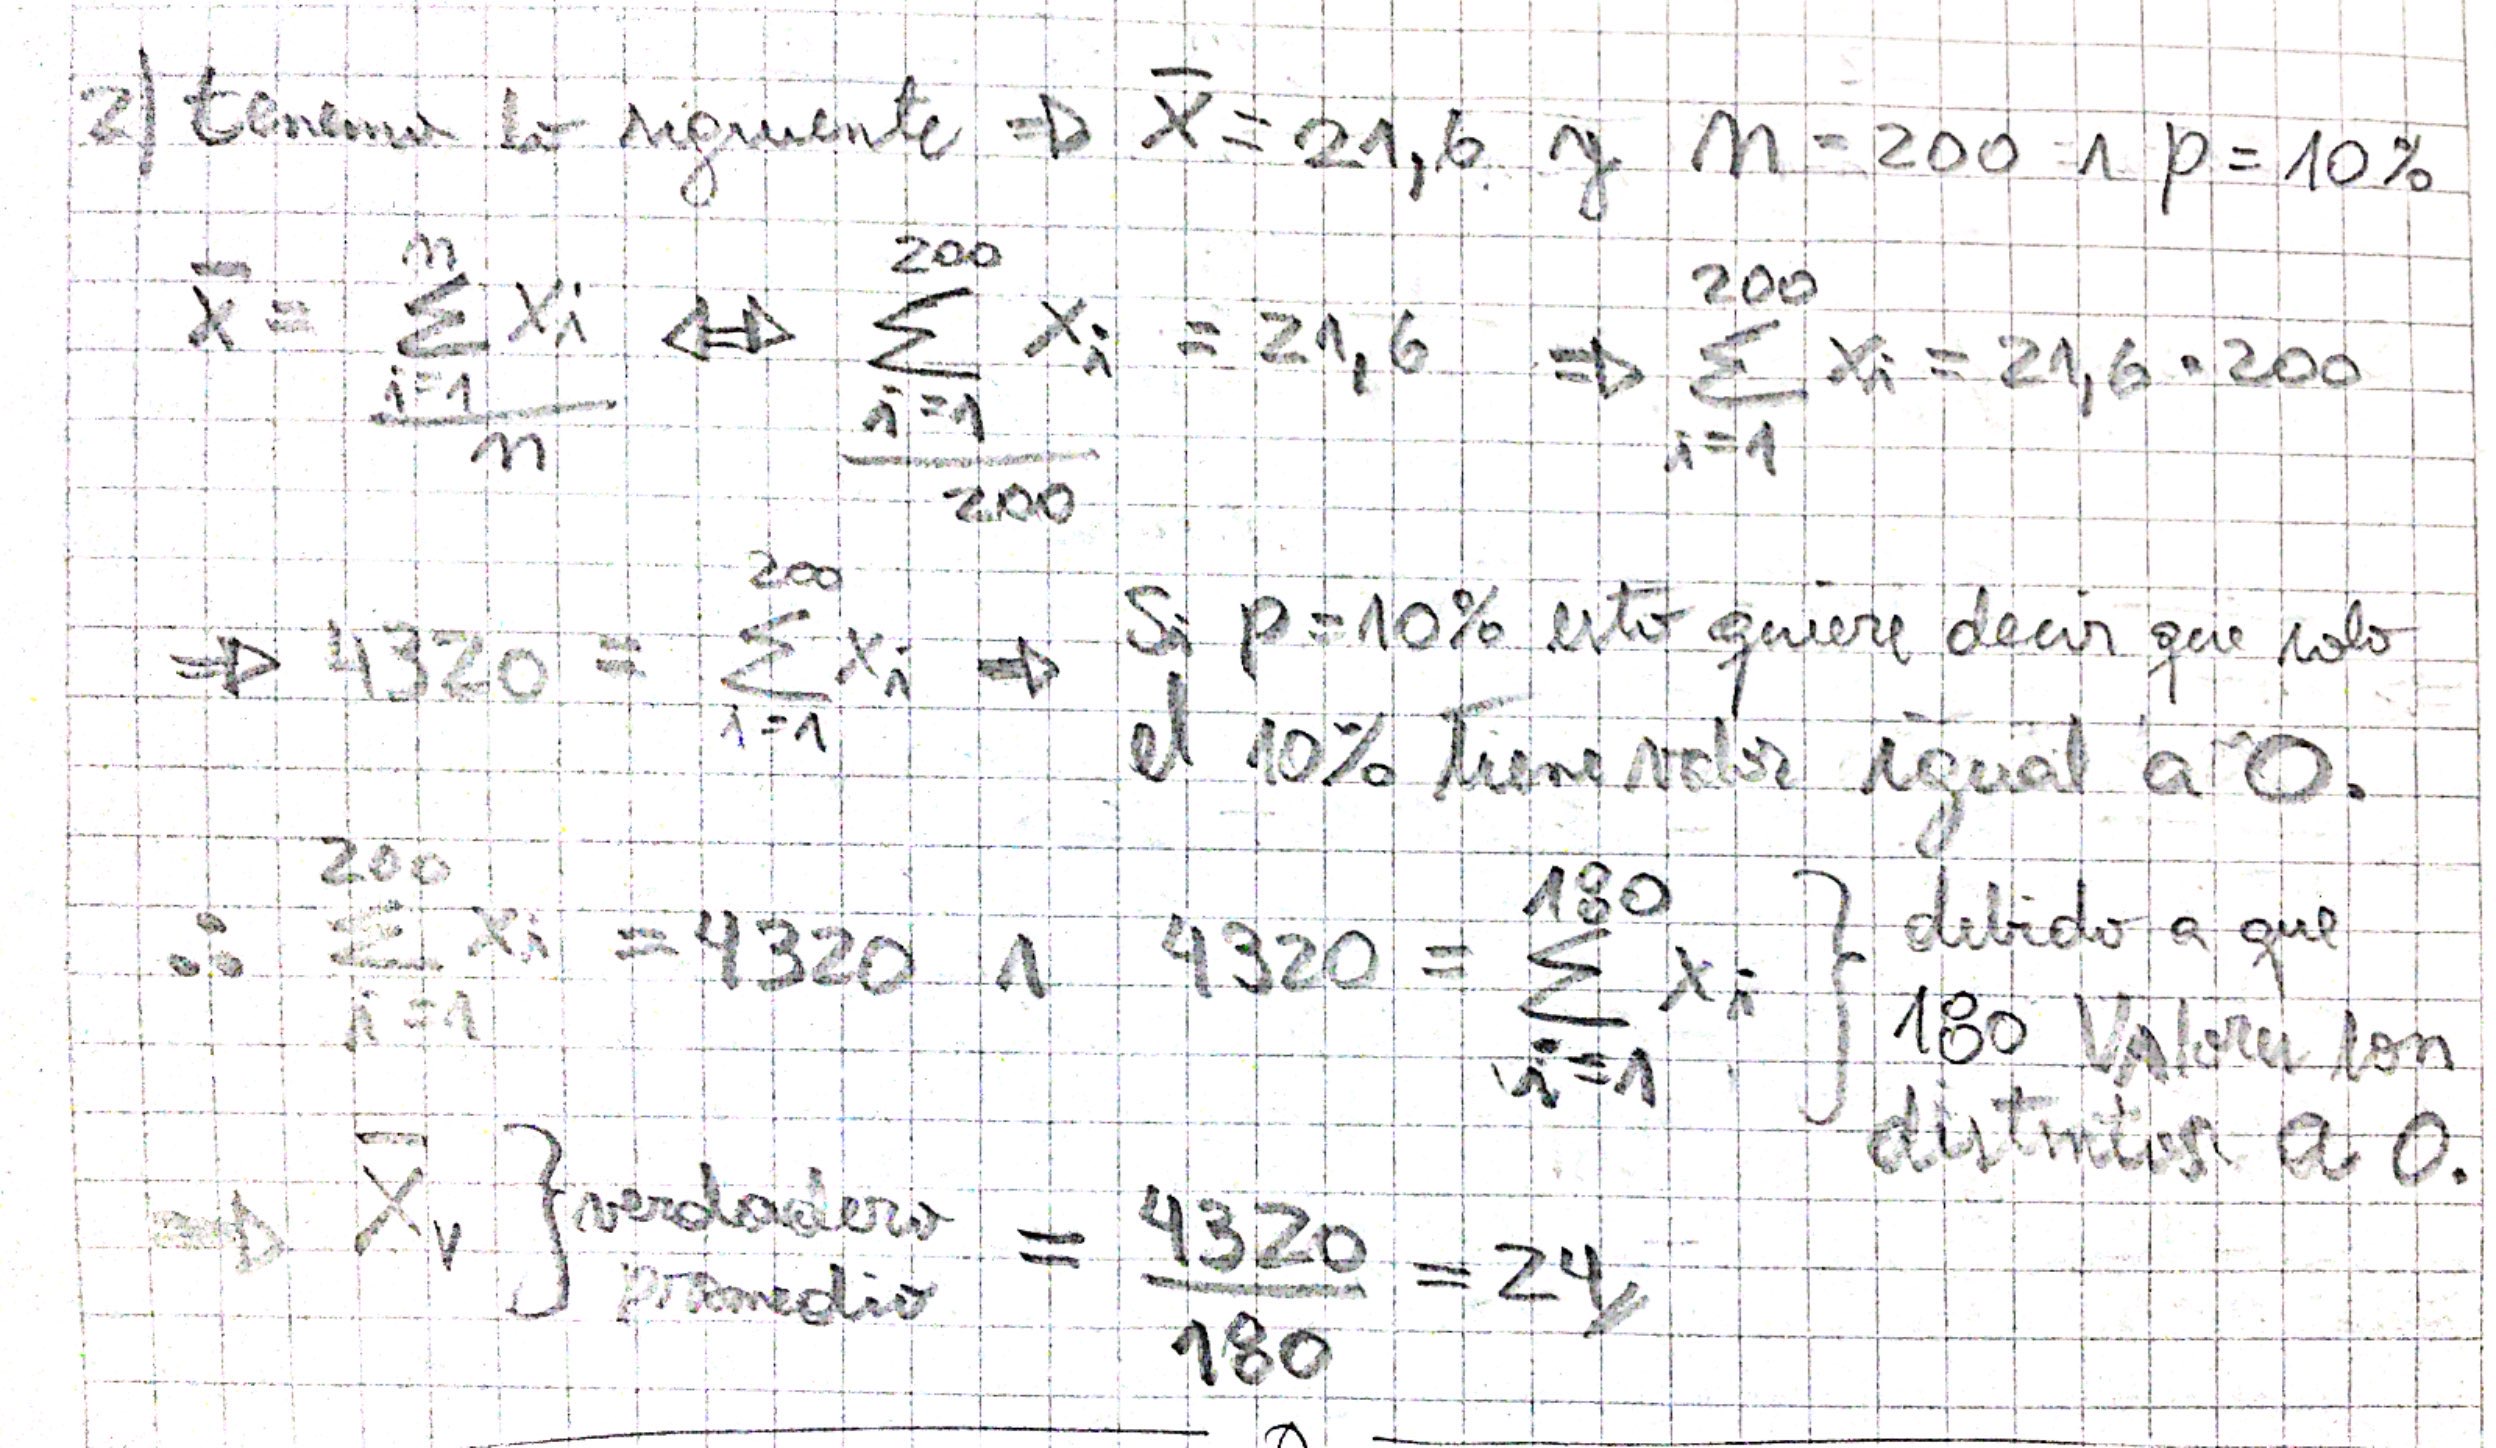 2) tenemos lo siguiente ⇒ x̄ = 21,6 y n = 200 ∧ p = 10%
x̄ = \frac{\sum_{i=1}^{n} x_i}{n} ⇔ \frac{\sum_{i=1}^{200} x_i}{200} = 21,6 ⇒ \sum_{i=1}^{200} x_i = 21,6 · 200
⇒ 4320 = \sum_{i=1}^{200} x_i ⇒ Si p = 10% esto quiere decir que solo
el 10% tiene valor igual a 0.
∴ \sum_{i=1}^{200} x_i = 4320 ∧ 4320 = \sum_{i=1}^{180} x_i } debido a que
180 Valores son
distintos a 0.
⇒ x̄_v } verdadero promedio = \frac{4320}{180} = 24